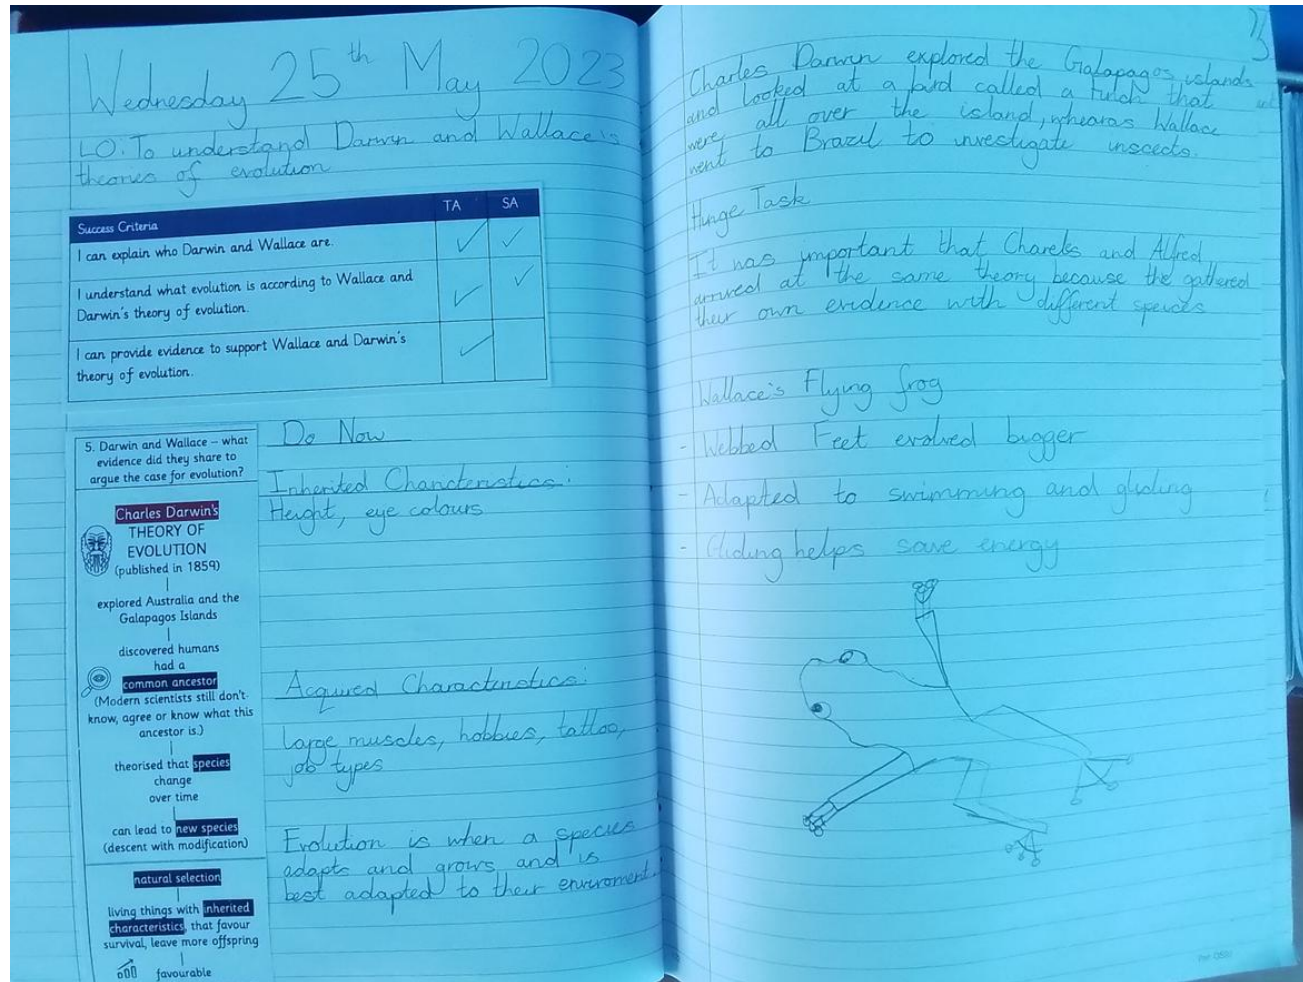 Wednesday 25th May 2023
LO. To understand Darwin and Wallace's
theories of evolution
Success Criteria
TA
SA
I can explain who Darwin and Wallace are.
I understand what evolution is according to Wallace and
Darwin's theory of evolution.
I can provide evidence to support Wallace and Darwin's
theory of evolution.
5. Darwin and Wallace – what
evidence did they share to
argue the case for evolution?
Charles Darwin's
THEORY OF
EVOLUTION
(published in 1859)
explored Australia and the
Galapagos Islands
discovered humans
had a
common ancestor
(Modern scientists still don't
know, agree or know what this
ancestor is.)
theorised that species
change
over time
can lead to new species
(descent with modification)
natural selection
living things with inherited
characteristics, that favour
survival, leave more offspring
favourable
Do Now
Inherited Characteristics:
Height, eye colours
Acquired Characteristics:
Large muscles, hobbies, tattoo,
job types
Evolution is when a species
adapts and grows and is
best adapted to their enviroment.
Charles Darwin explored the Galapagos islands
and looked at a bird called a finch that
were all over the island, whearas Wallace
went to Brazil to investigate inscects.
Hinge Task
It was important that Charels and Alfred
arrived at the same theory because the gathered
their own evidence with different speices
Wallace's Flying frog
- Webbed Feet evolved bigger
- Adapted to swimming and gliding
- Gliding helps save energy